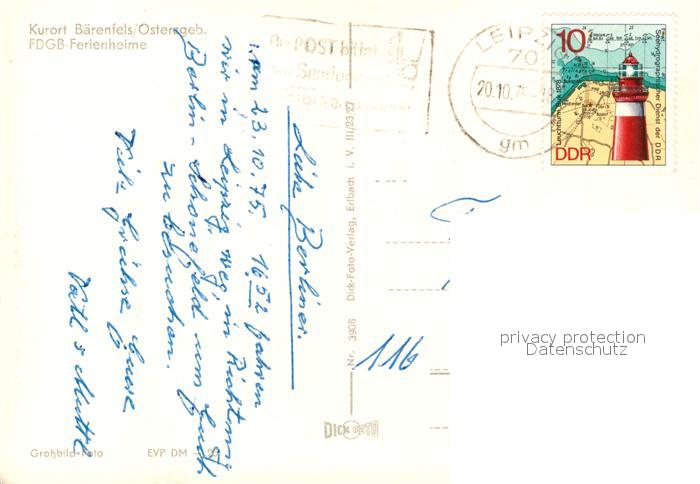 Kurort Bärenfels/Osterzgeb.
FDGB-Ferienheime
Liebe Berliner.
Am 23.10.75, 16 52 fahren
wir in Leipzig weg, in Richtung
Berlin-Schönefeld um Euch
zu besuchen.
Viele Grüße Eure
Vati & Mutti
Großbild-Foto
EVP DM
Nr. 3908 Dick-Foto-Verlag, Erlbach i. V. III/23/27
DICK FOTO
116
Die POST bittet
LEIPZIG
70
20.10.75
gm
10
DDR
Seehydrographischer Dienst der DDR
privacy protection
Datenschutz